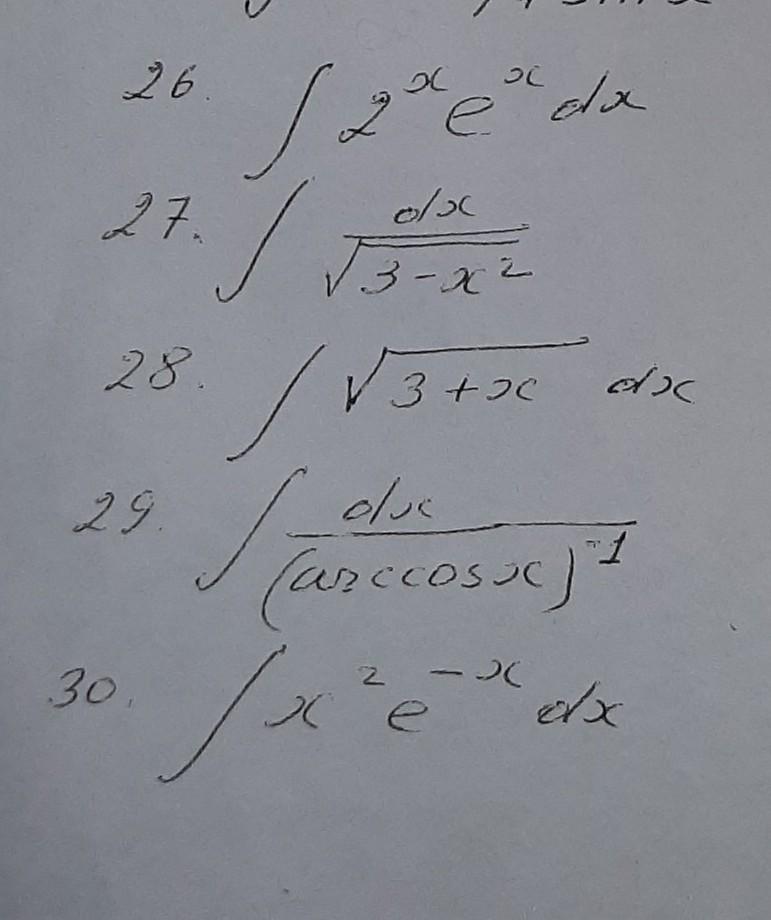 26. ∫ 2^x e^x dx
27. ∫ dx / √(3-x^2)
28. ∫ √(3+x) dx
29. ∫ dx / (arccosx)^-1
30. ∫ x^2 e^-x dx